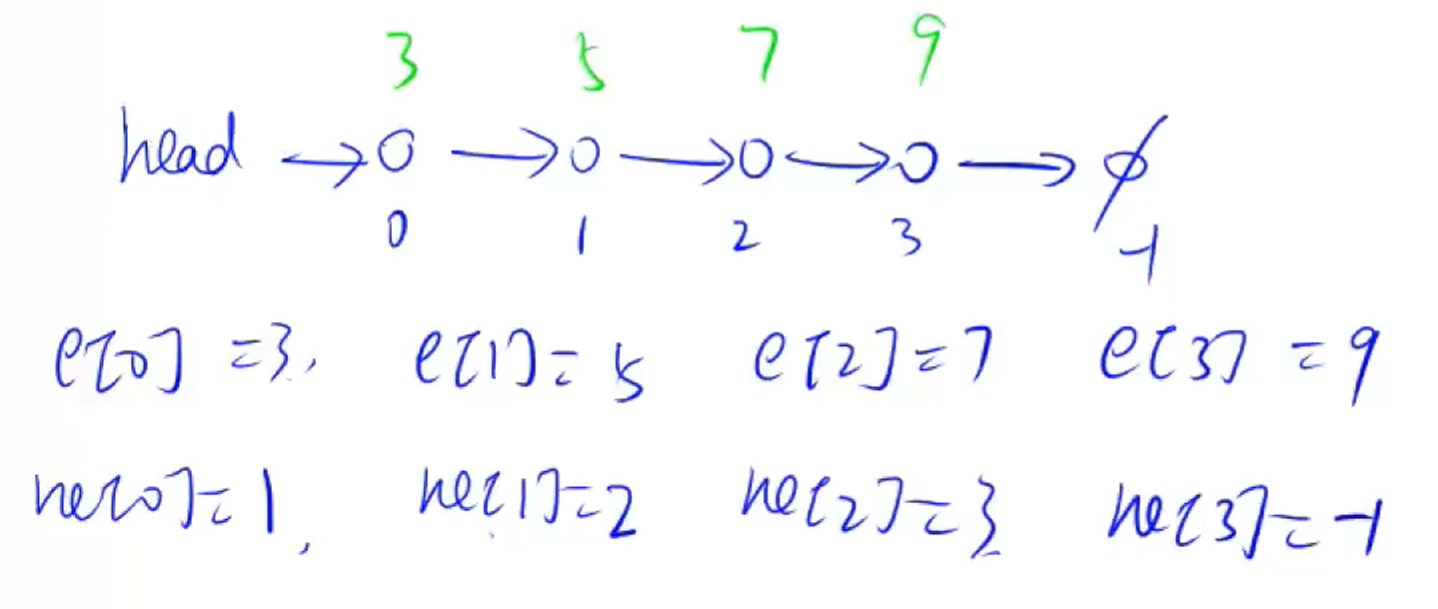 3 5 7 9
head → O → O → O → O → ∅
0 1 2 3 -1
e[0] = 3, e[1] = 5 e[2] = 7 e[3] = 9
ne[0] = 1, ne[1] = 2 ne[2] = 3 ne[3] = -1